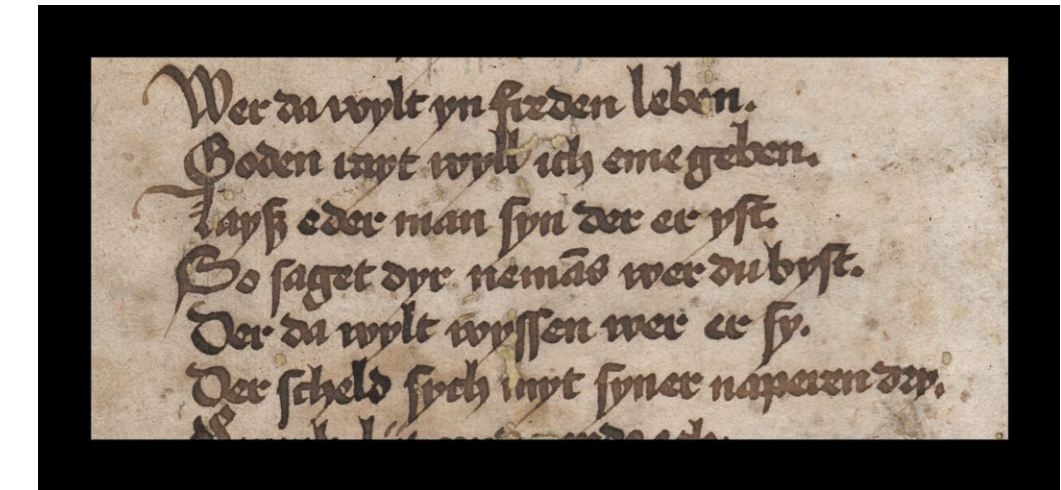 Wer da wylt yn freden leben.
Goden rayt wyll ich eme geben.
Layß eder man syn der er yst.
So saget dyr nemãs wer du byst.
Der da wylt wyssen wer er sy.
Der scheld sych myt syner naperen dry.